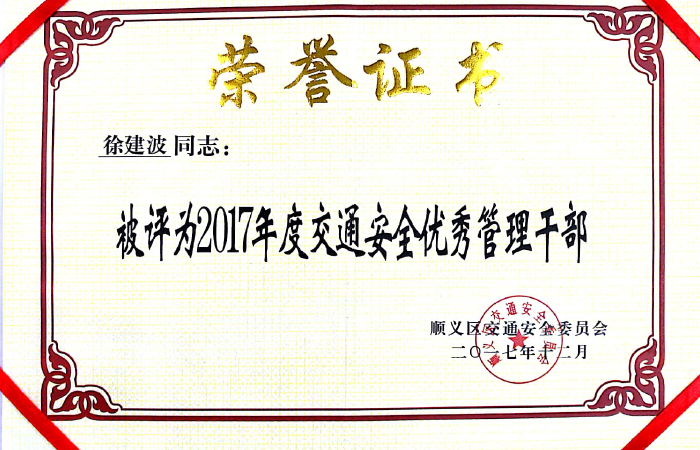 荣誉证书
徐建波同志：
被评为2017年度交通安全优秀管理干部
顺义区交通安全委员会
二〇一七年十二月
顺义区交通安全委员会